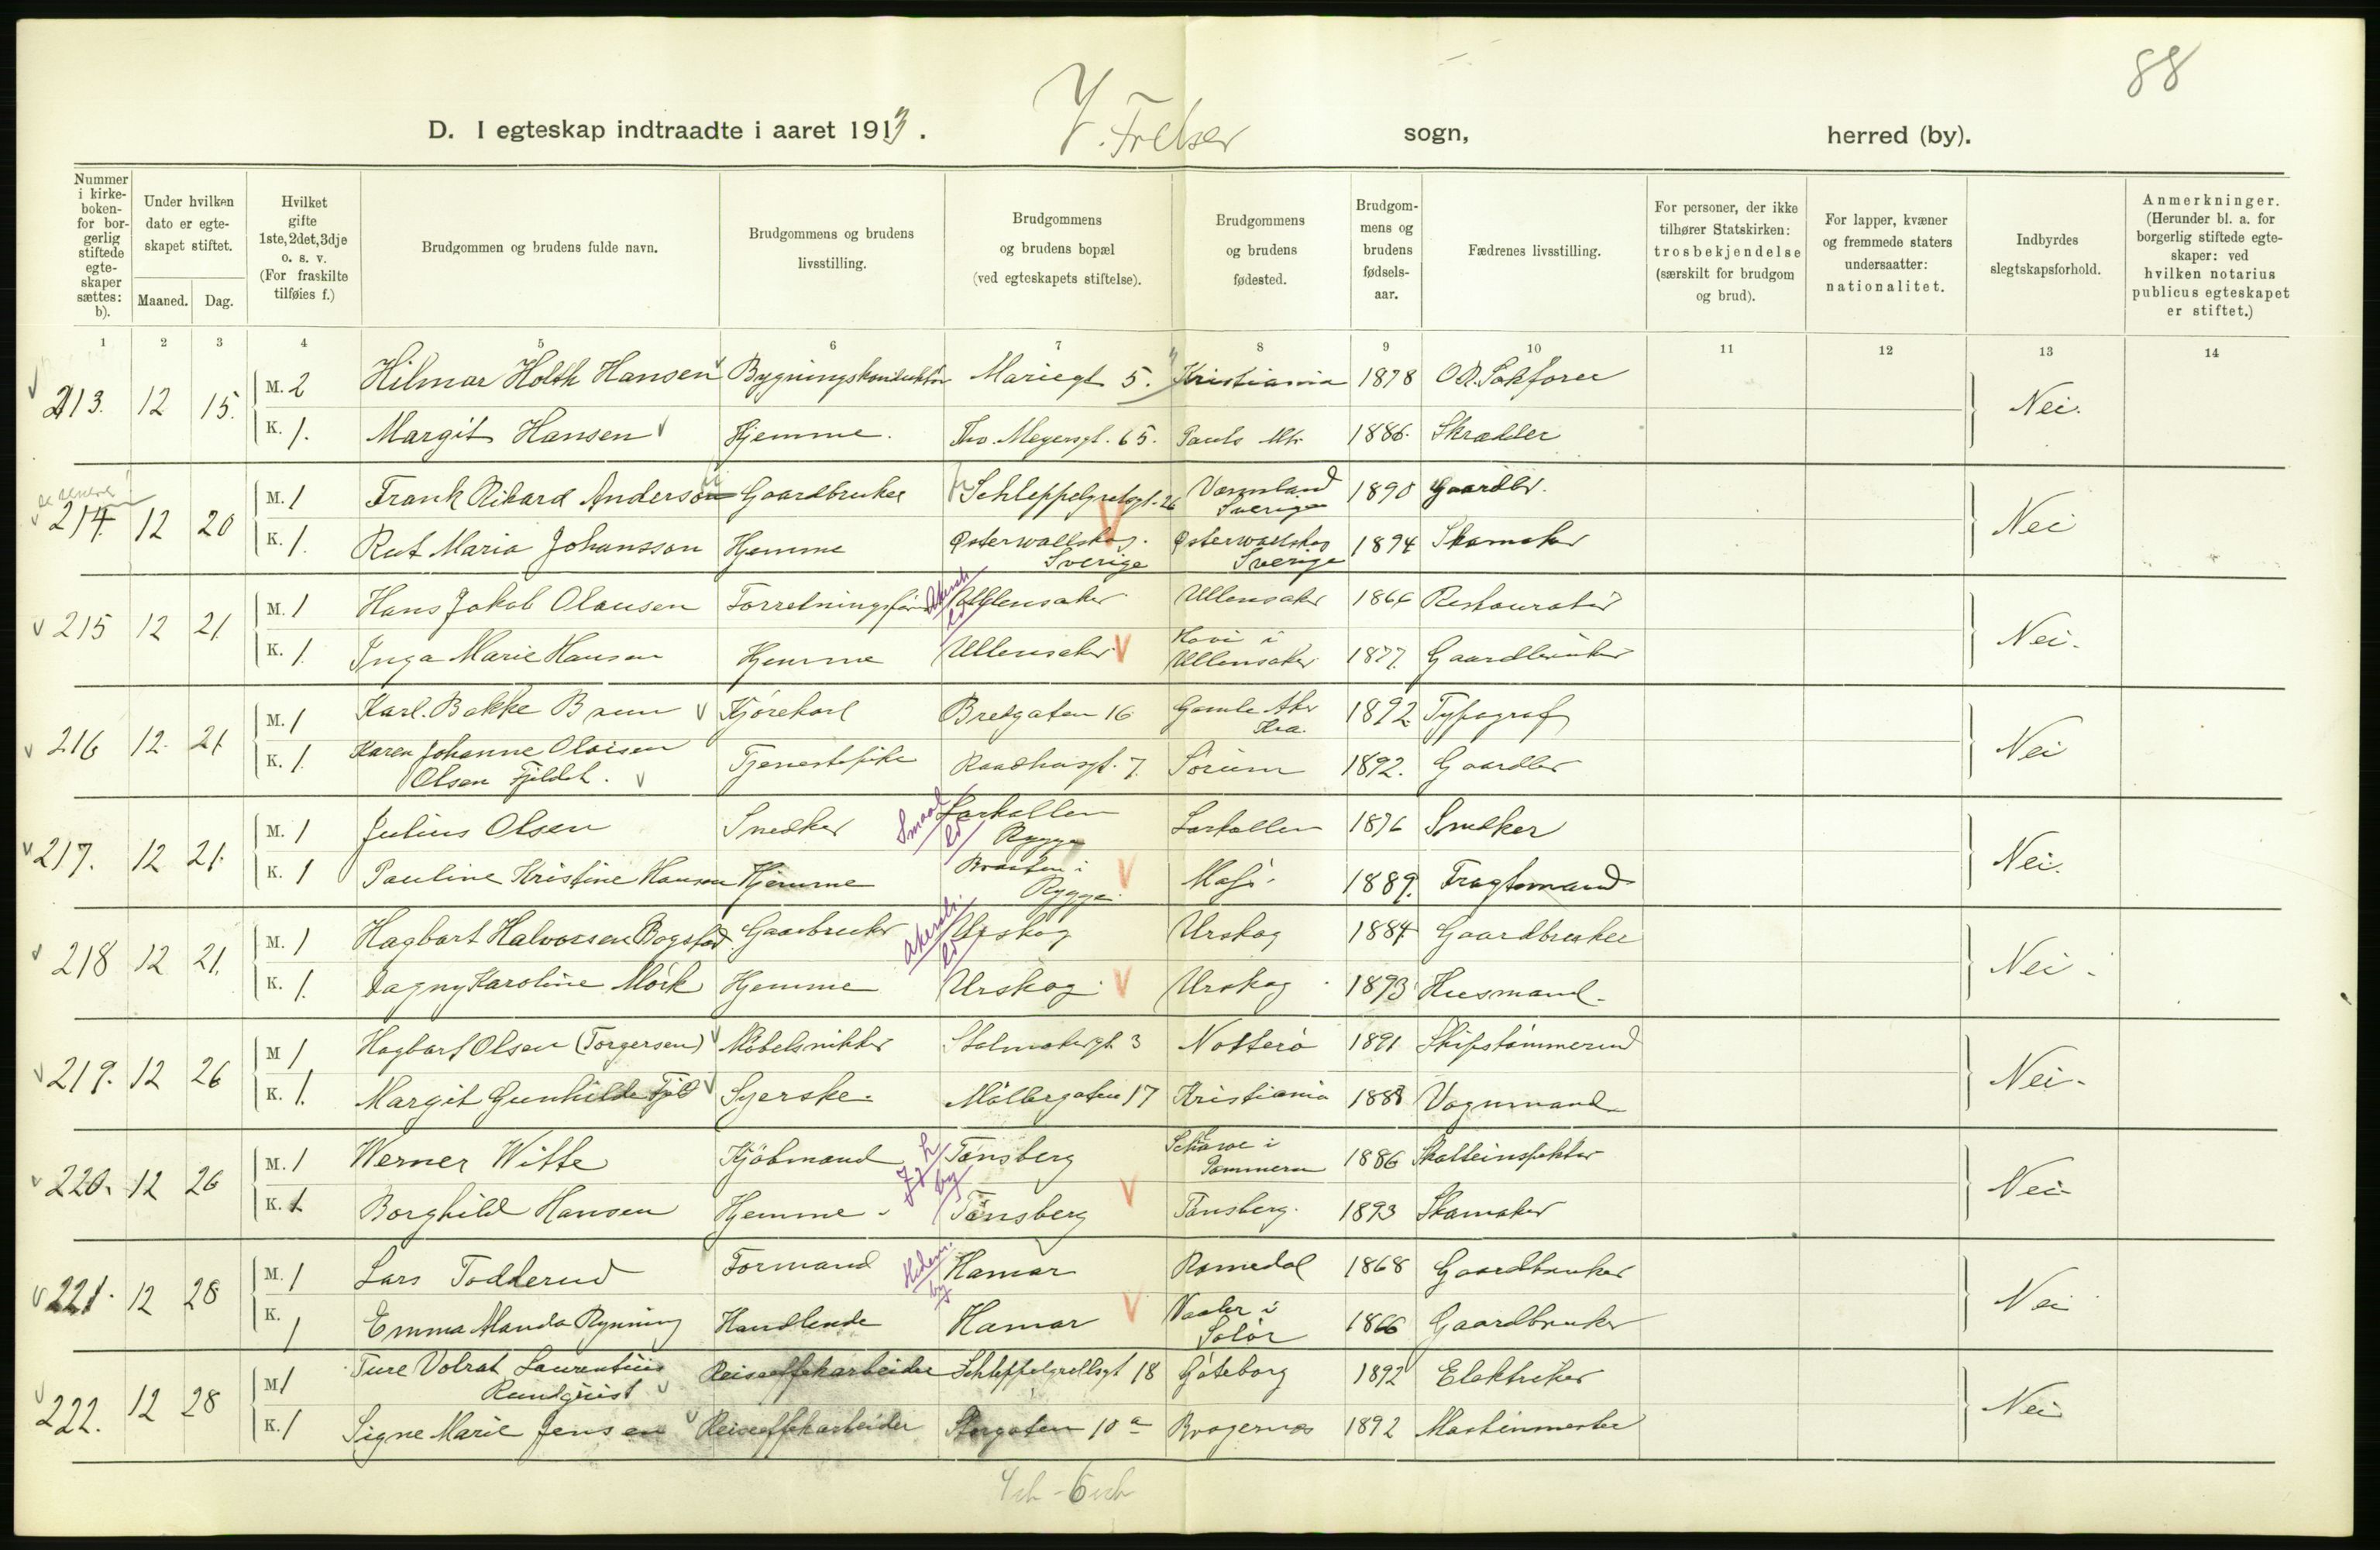 88
D. I egteskap indtraadte i aaret 1913. V. Frelser sogn, herred (by).
Nummer i kirke-boken- for bor-gerlig stiftede egte-skaper sættes: b).
Under hvilken dato er egte-skapet stiftet.
Maaned. Dag.
Hvilket gifte 1ste, 2det, 3dje o. s. v. (For fraskilte tilføies f.)
Brudgommen og brudens fulde navn.
Brudgommens og brudens livsstilling.
Brudgommens og brudens bopæl (ved egteskapets stiftelse).
Brudgommens og brudens fødested.
Brudgom-mens og brudens fødsels-aar.
Fædrenes livsstilling.
For personer, der ikke tilhører Statskirken: trosbekjendelse (særskilt for brudgom og brud).
For lapper, kvæner og fremmede staters undersaatter: nationalitet.
Indbyrdes slegtskapsforhold.
Anmerkninger. (Herunder bl. a. for borgerlig stiftede egte-skaper: ved hvilken notarius publicus egteskapet er stiftet.)
1 2 3 4 5 6 7 8 9 10 11 12 13 14
213. 12 15. M. 2 Hilmar Holth Hansen Bygningskonduktør Mariegt 5. Kristiania 1878 O.R. Sakfører Nei.
K. 1. Margit Hansen Hjemme. Tho. Meyersgt. 65. Pauls Mh. 1886. Skrædder
214. 12 20 M. 1 Frank Rikard Anderson Gaardbruker Schleppegrelsgt. 26 Värmland Sverige 1890 Gaardbr. Nei
K. 1. Rut Maria Johansson Hjemme Østerwallskog. Sverige Østerwallskog Sverige 1894 Skomaker
215 12 21 M. 1 Hans Jakob Olausen Forretningsfører Akersh. ld Ullensaker Ullensaker 1866 Restauratør Nei.
K. 1. Inga Marie Hansen Hjemme Ullensaker Hovi i Ullensaker 1877. Gaardbruker
216 12. 21 M. 1 Karl. Bakke Baun Kjørekarl Bredgaten 16 Gamle Aker Kra. 1892 Typograf Nei
K. 1. Karen Johanne Olaisen Olsen Fjeldet. Tjenestepike Raadhusgt. 7. Sørum 1892. Gaardbr
217. 12 21. M. 1 Julius Olsen Snedker Smaal ld Larkollen Rygge Larkollen 1876 Snedker Nei.
K. 1 Pauline Kristine Hansen Hjemme Braaten i Rygge. Moss. 1889. Fragtemand
218 12 21. M. 1 Hagbart Halvorsen Bogstad Gaardbruker Akersh. ld Urskog Urskog 1884 Gaardbruker Nei.
K. 1. Dagny Karoline Mörk Hjemme Urskog. Urskog 1893 Husmand.
219. 12 26 M 1 Hagbart Olsen (Torgersen) Møbelsnikker Stolmakergt. 3 Nøtterö 1891 Skipstømmermd Nei.
K. 1. Margit Gunhilde Fjeld Syerske. Møllergaten 17 Kristiania 1888 Vognmand
220. 12 26 M. 1 Werner Witte Kjöbmand J h by Tønsberg i Pommern 1886 Skatteinspektør Nei
K. 1 Borghild Hansen Hjemme. Tønsberg Tønsberg. 1893 Skomaker
221. 12 28 M. 1 Lars Todderud Formand Hedem. by Hamar Romedal 1868 Gaardbruker Nei
K. 1 Emma Manda Rynning Handlende Hamar Vaaler i Solör 1866 Gaardbruker
222. 12 28 M 1 Ture Volrat Laurentius Rundquist Reiseeffekarbeider Schleppegrellsgt 18 Göteborg 1892 Elektriker Nei
K. 1 Signe Marie Jensen Reiseeffekarbeider Storgaten 10a Bragernæs 1892 Maskinmester